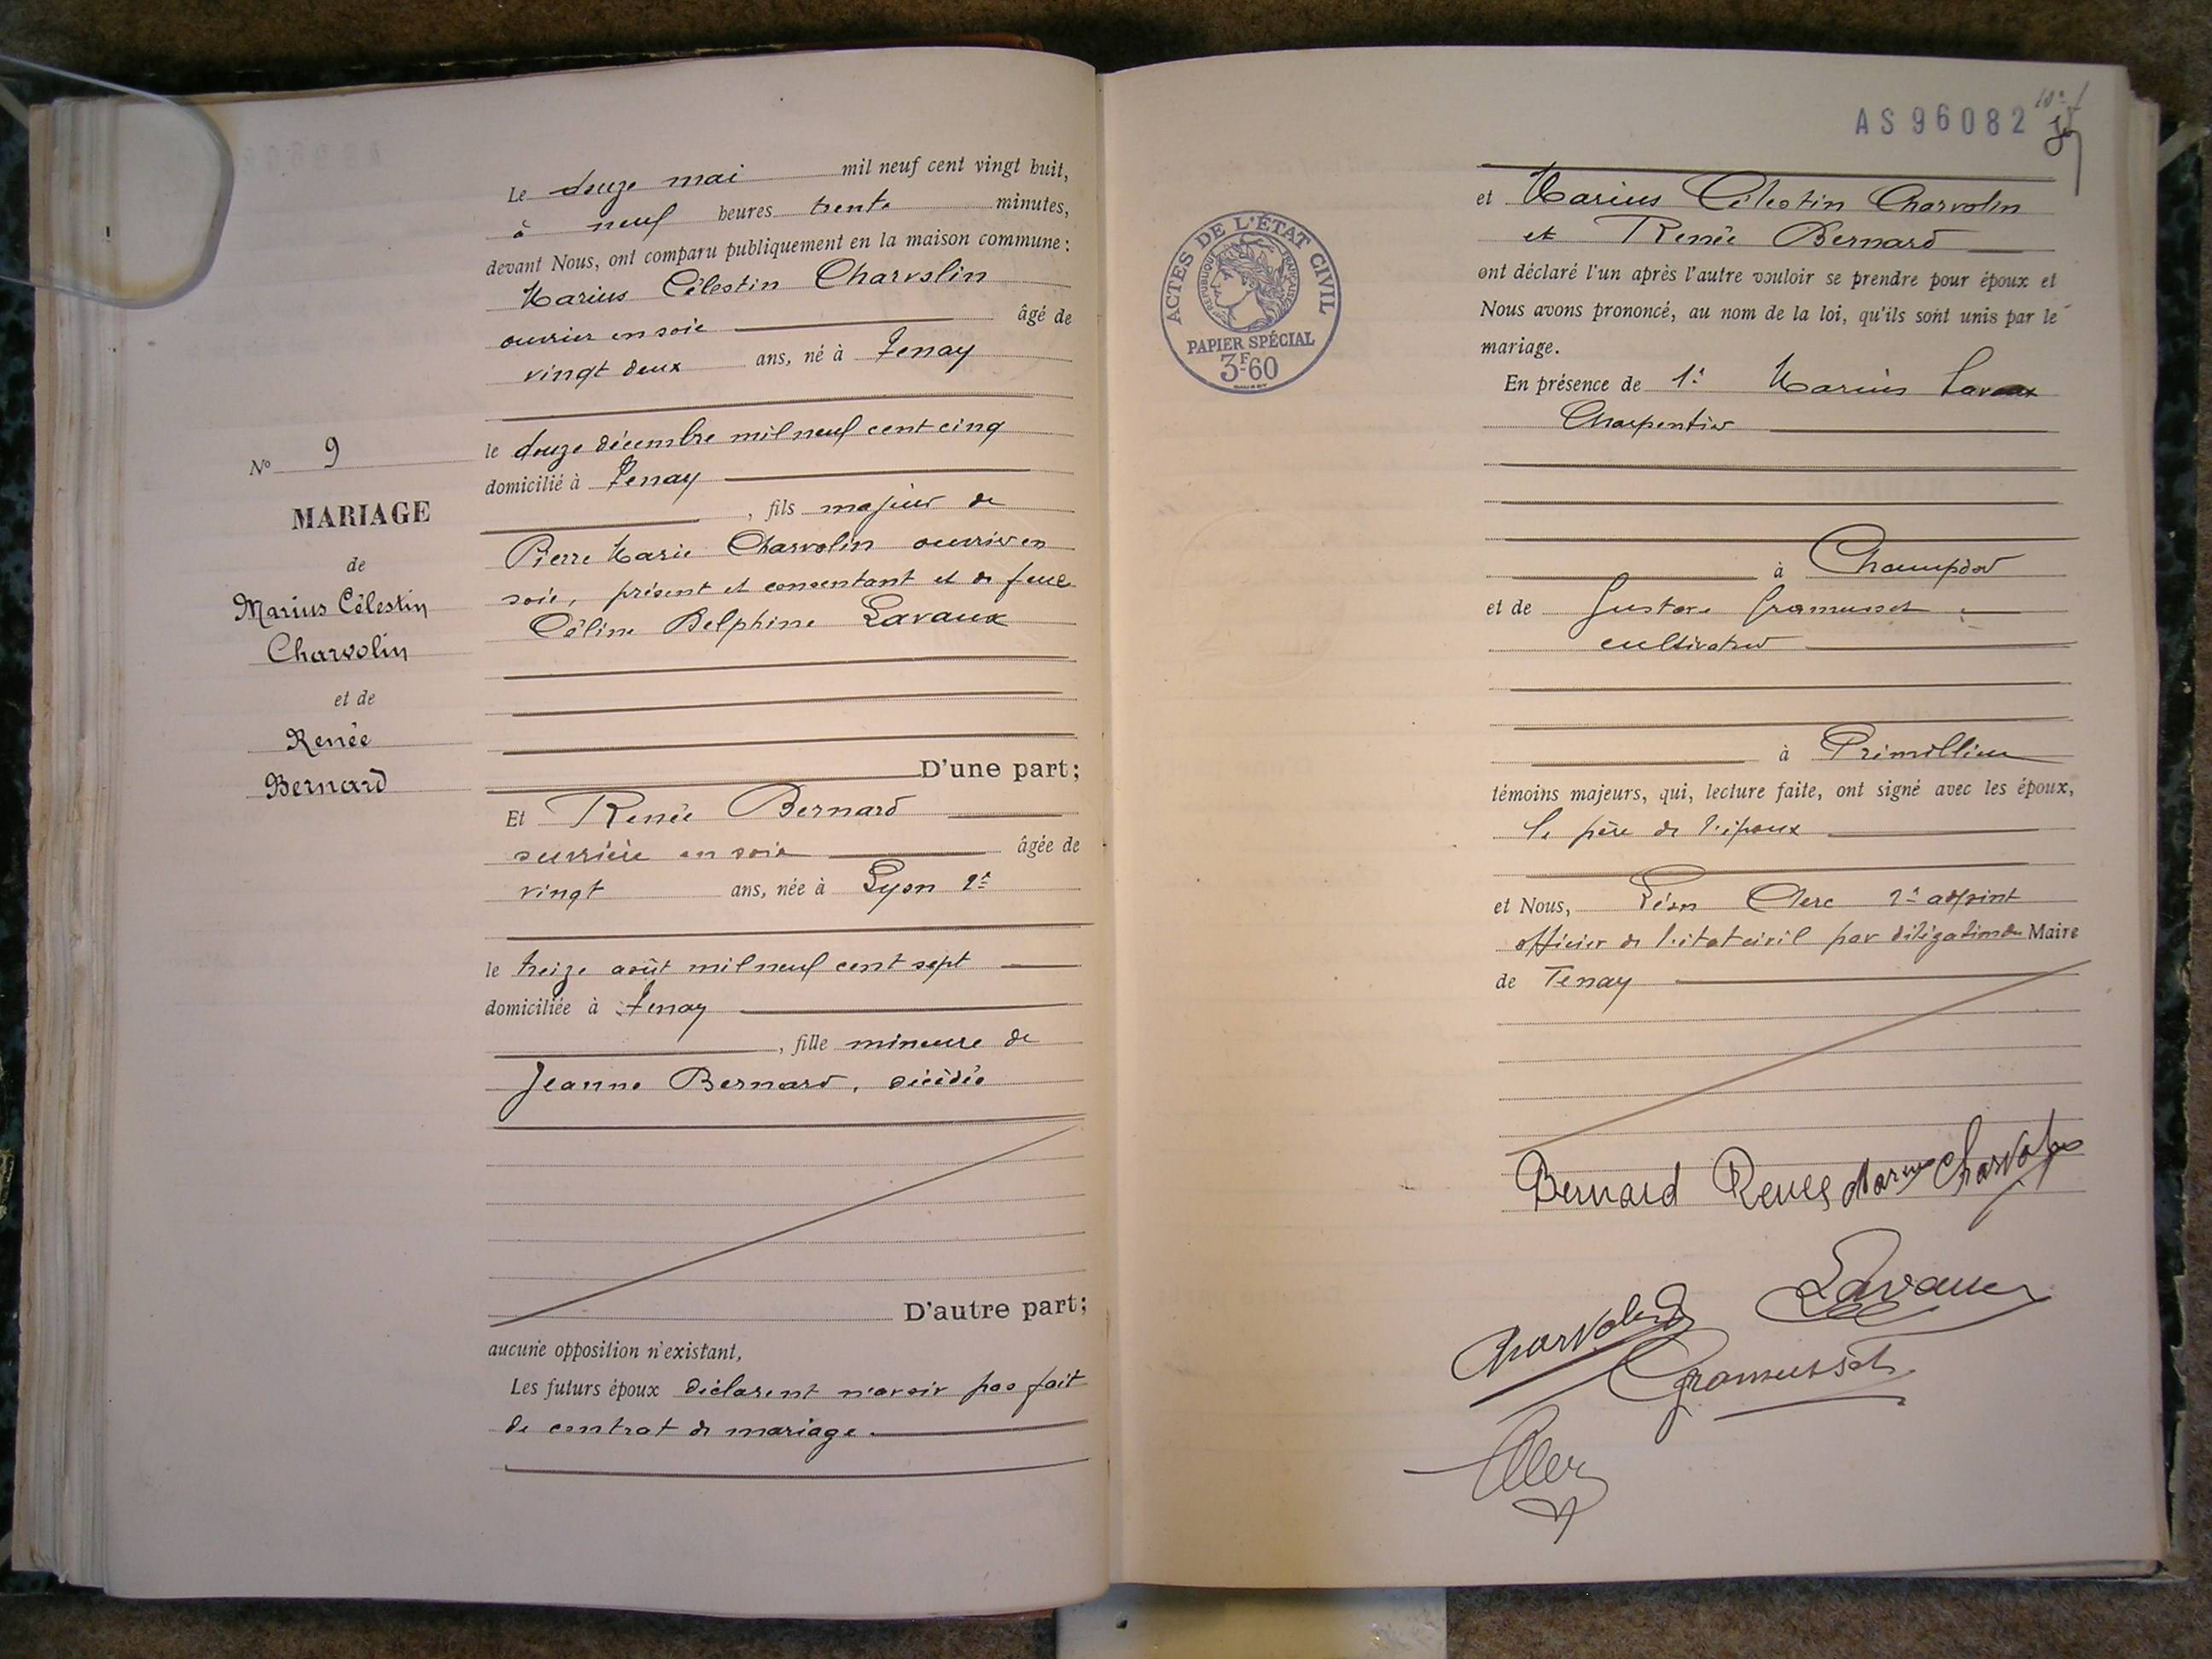 N° 9
MARIAGE
de
Marius Célestin
Charvolin
et de
Renée
Bernard
Le douze mai mil neuf cent vingt huit,
à neuf heures trente minutes,
devant Nous, ont comparu publiquement en la maison commune :
Marius Célestin Charvolin
ouvrier en soie âgé de
vingt deux ans, né à Tenay
le douze décembre mil neuf cent cinq
domicilié à Tenay
, fils majeur de
Pierre Marie Charvolin ouvrier en
soie, présent et consentant et de feue
Céline Delphine Lavaux
D'une part;
Et Renée Bernard
ouvrière en soie âgée de
vingt ans, née à Lyon 2e
le treize août mil neuf cent sept
domiciliée à Tenay
, fille mineure de
Jeanne Bernard, décédée
D'autre part;
aucune opposition n'existant,
Les futurs époux déclarent n'avoir pas fait
de contrat de mariage.
AS96082
ACTES DE L'ÉTAT CIVIL
RÉPUBLIQUE FRANÇAISE
PAPIER SPÉCIAL
3F60
et Marius Célestin Charvolin
et Renée Bernard
ont déclaré l'un après l'autre vouloir se prendre pour époux et
Nous avons prononcé, au nom de la loi, qu'ils sont unis par le
mariage.
En présence de 1° Marius Lavaux
Charpentier
à Champdor
et de Gustave Gramusset
cultivateur
à Prémillieu
témoins majeurs, qui, lecture faite, ont signé avec les époux,
le père de l'époux
et Nous, Léon Clerc 2e adjoint
officier de l'état civil par délégation du Maire
de Tenay
Bernard Renée Marius Charvolin
Lavaux
Charvolin
Gramusset
Clerc